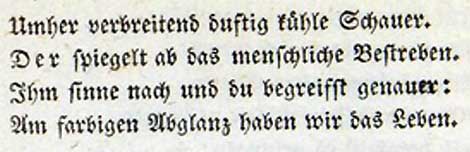 Umher verbreitend duftig kühle Schauer.
Der spiegelt ab das menschliche Bestreben.
Ihm sinne nach und du begreifst genauer:
Am farbigen Abglanz haben wir das Leben.